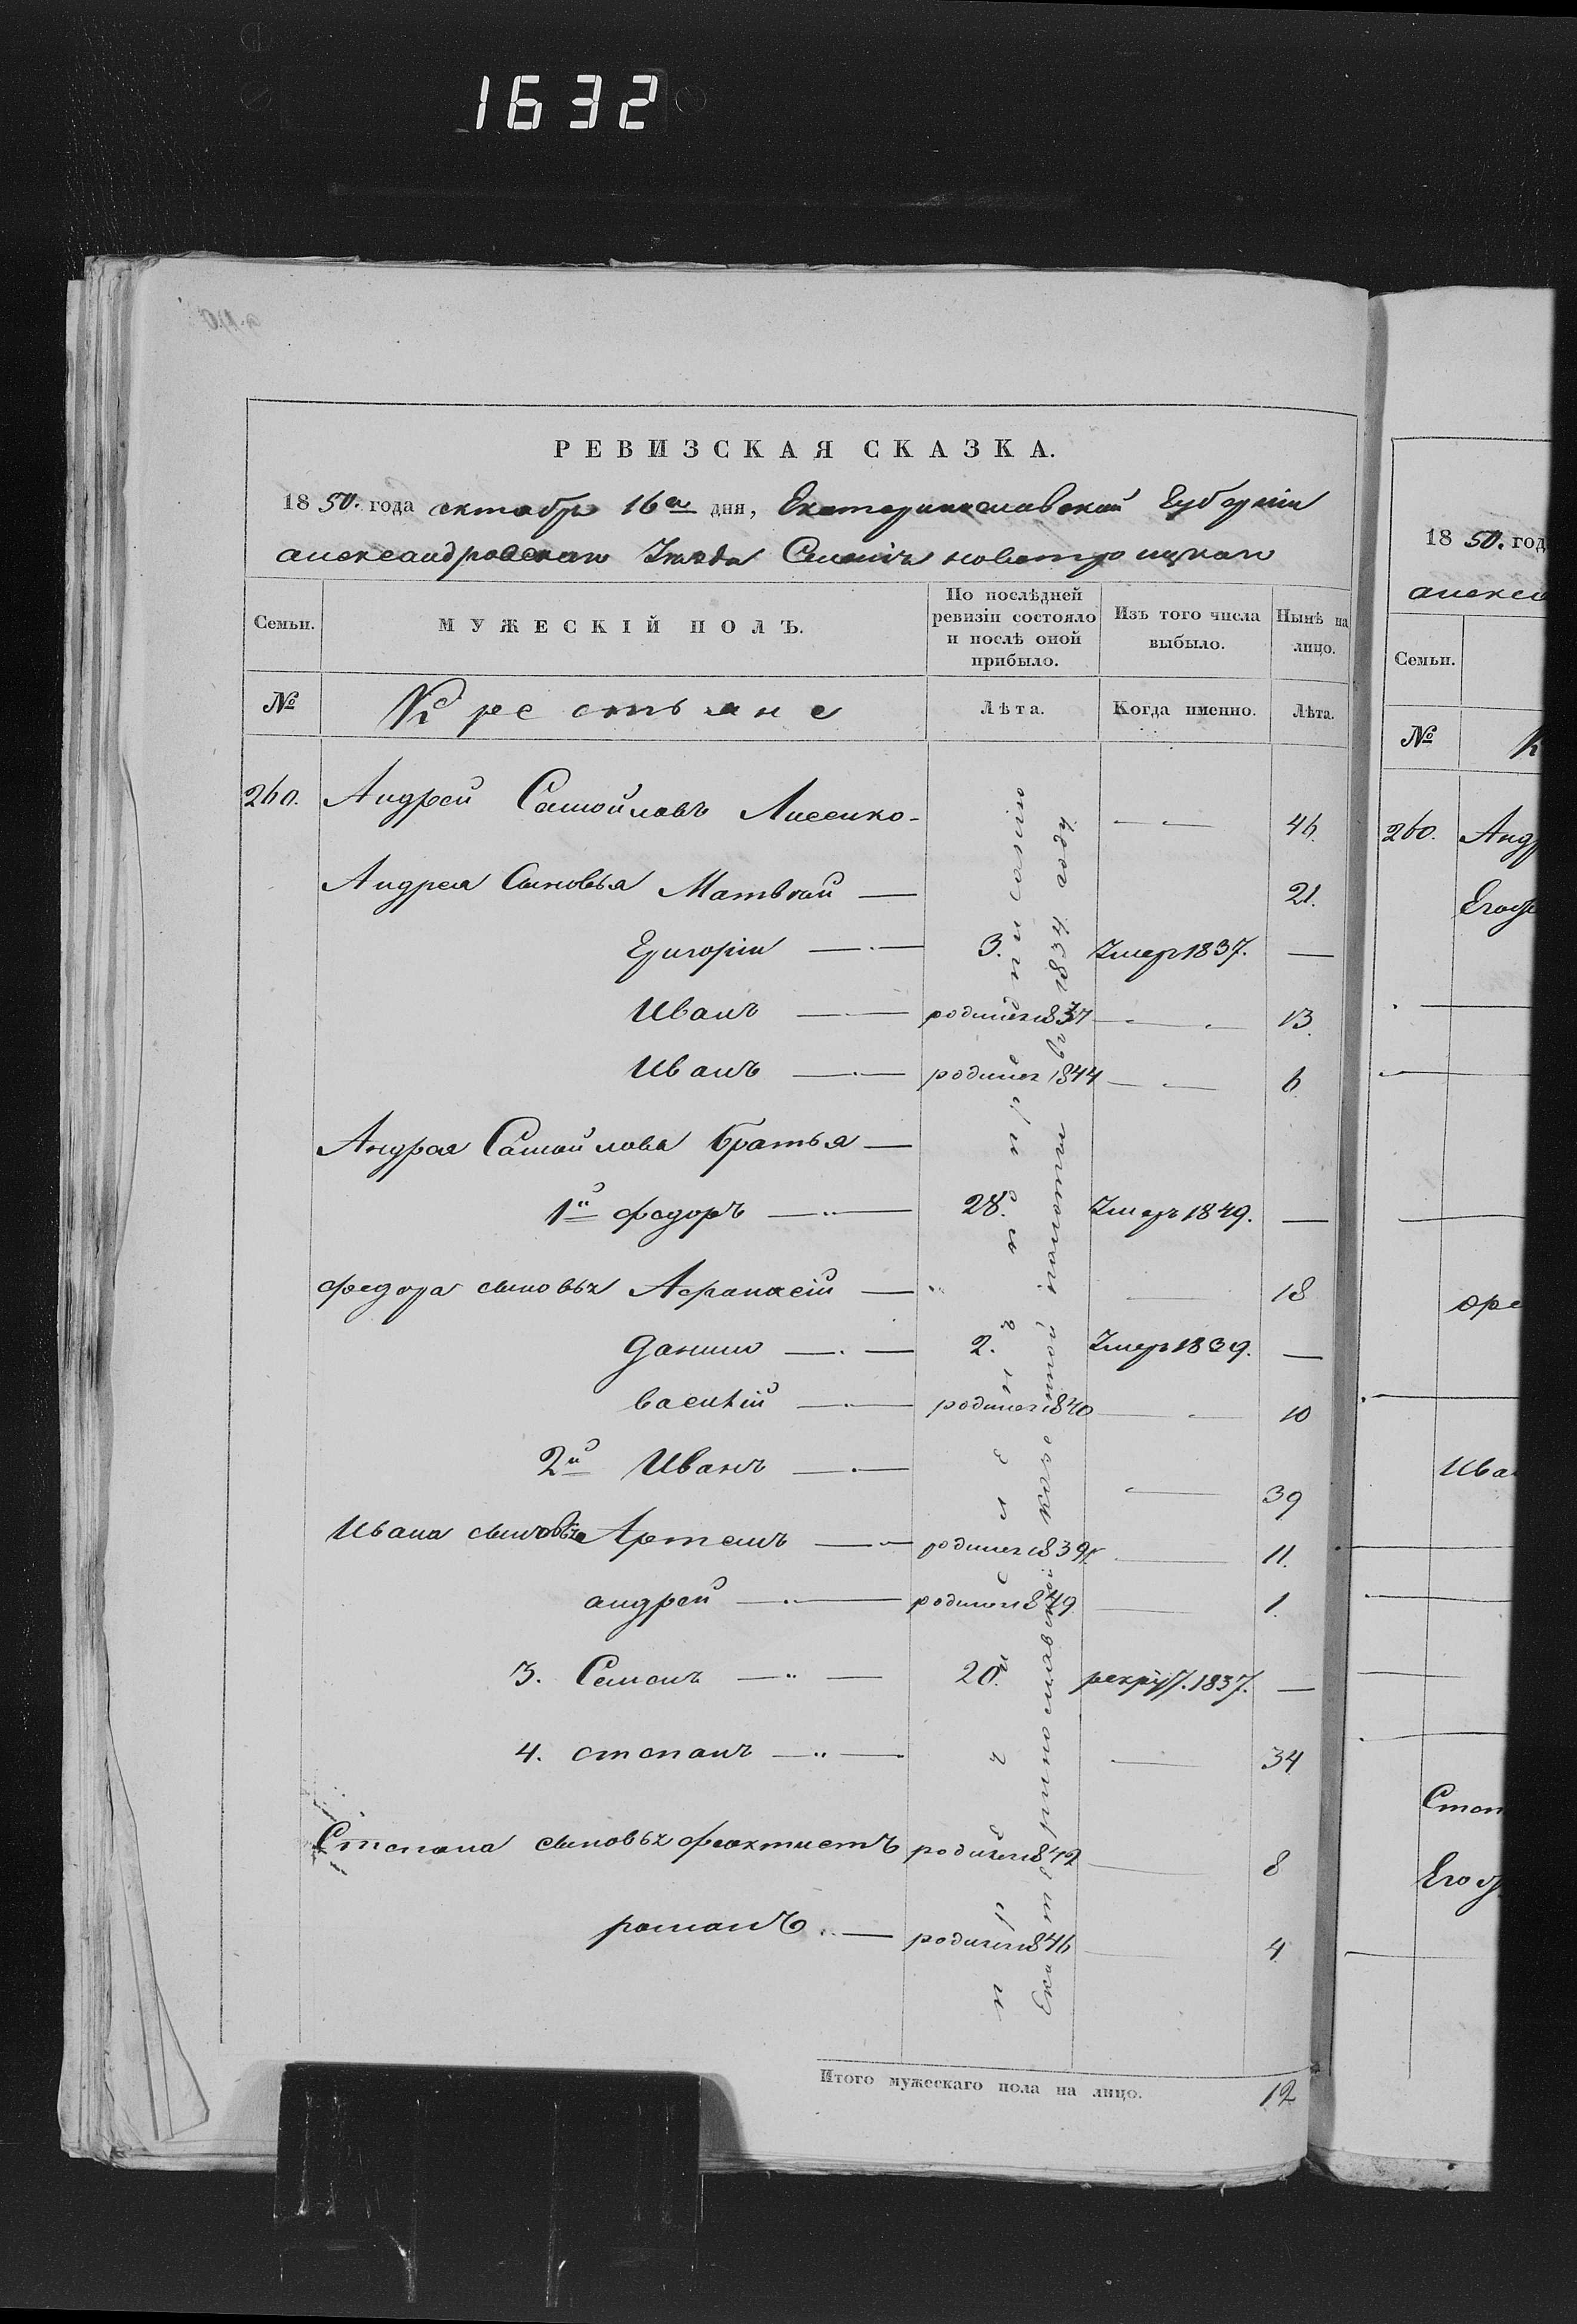 1632
РЕВИЗСКАЯ СКАЗКА.
1850. года октября 16го дня, Екатеринославской Губерніи
александровскаго Уезда Селенія новотроицкаго
Семьи. МУЖЕСКІЙ ПОЛЪ. По послѣдней ревизіи состояло и послѣ оной прибыло. Изъ того числа выбыло. Нынѣ на лицо.
№ Крестьяне Лѣта. Когда именно. Лѣта.
260. Андрей Самойловъ Лисенко - — 46.
Андрея Сыновья Матвѣй — 21.
Григорій — 3. Умеръ 1837. —
Иванъ — родился 1837 — 13.
Иванъ — родился 1844 — 6
Андрея Самойлова братья —
1й федоръ — 28. Умеръ 1849. —
федора сыновья Афанасій — „ — 18
Данило — 2. Умеръ 1839. —
василій — родился 1840 — 10
2й Иванъ — — 39
Ивана сыновья Артемъ — родился 1839 — 11.
андрей — родился 1849 — 1.
3. Семенъ — 20. рекрут. 1837. —
4. степанъ — — 34
Степана сыновья феоктистъ родился 1842 — 8
романъ — родился 1846 — 4
причисленъ по предписанію
Екатеринославской казенной палаты въ 1834 году
Итого мужескаго пола на лицо. 12
18 50. год
алексе
Семьи.
№ К
260. Анд
Его
Ива
Степ
Его